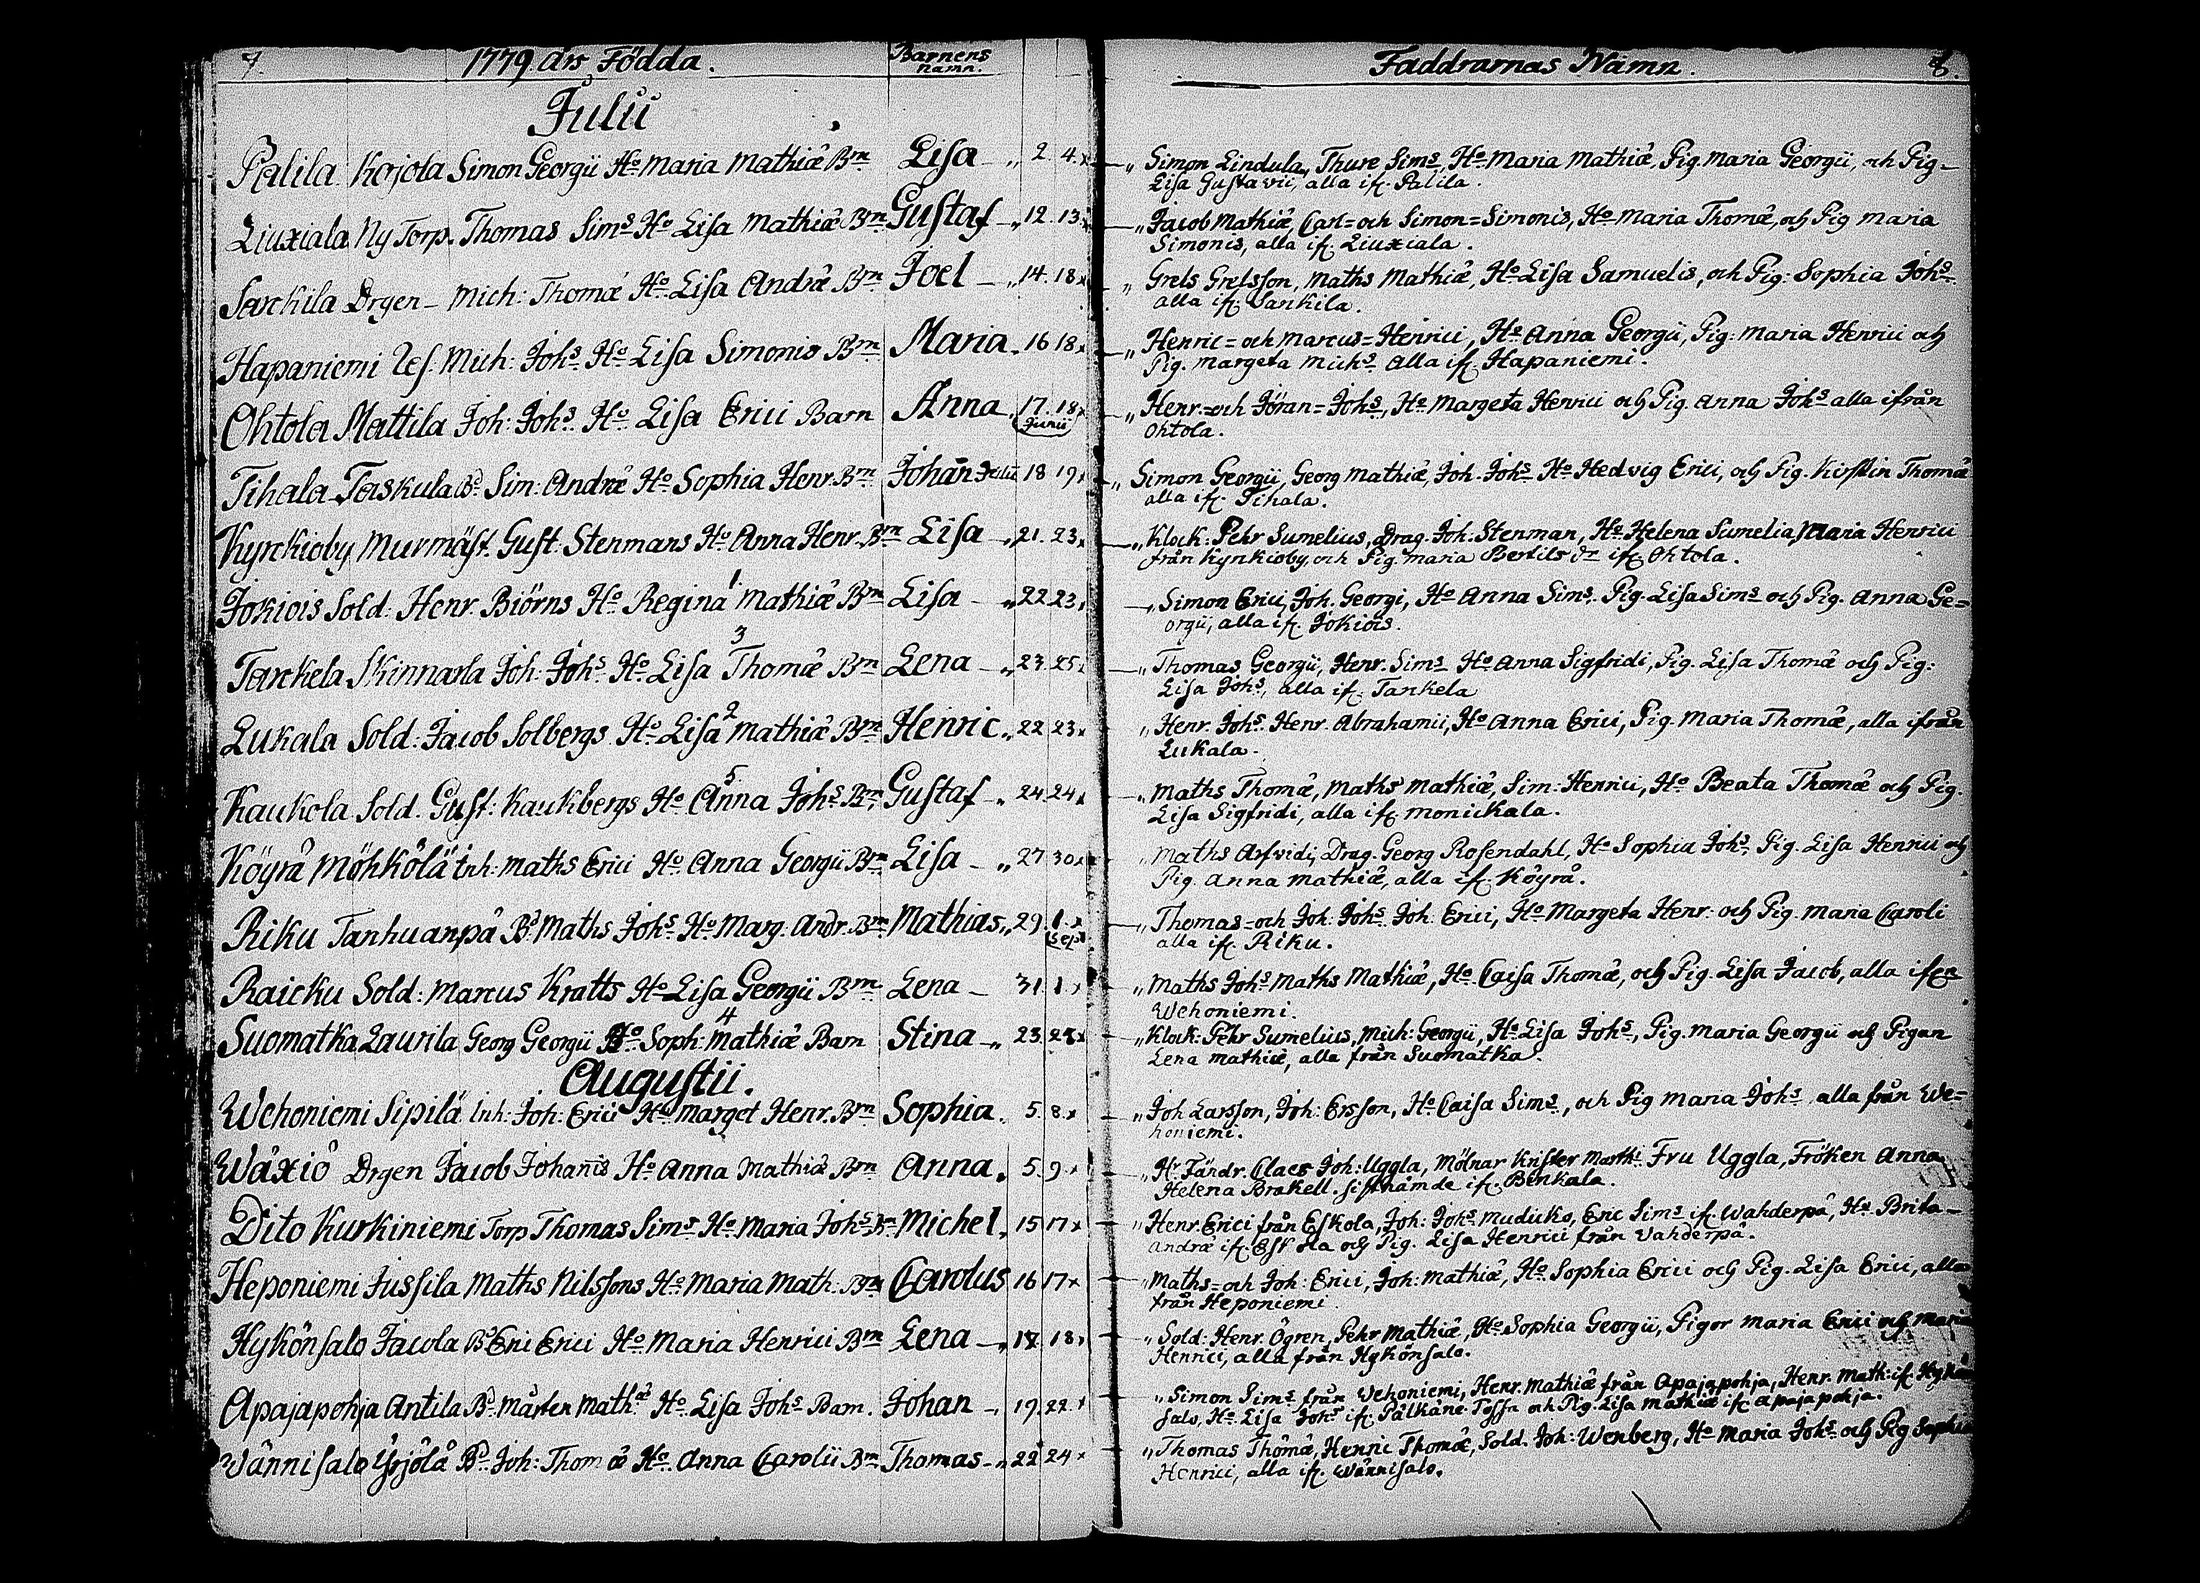 7. 1779 års Födda. Barnens namn. Faddrarnas Namn. 8.
Julii
Palila Kojola Simon Georgii Ho Maria Mathiæ Brn Lisa — „ 2. 4. x
„ Simon Lindula, Thure Sims Ho Maria Mathiæ, Pig. Maria Georgii, och Pig. Lisa Gustavii, alla if. Palila.
Liuxiala Ny Torp. Thomas Sims Ho Lisa Mathiæ Brn Gustaf — „ 12. 13. x
„ Jacob Mathiæ, Carl= och Simon= Simonis, Ho Maria Thomæ, och Pig Maria
Simonis, alla if. Liuxiala.
Sarckila Drgen — Mich: Thomæ Ho Lisa Andræ Brn Joel — „ 14. 18 x
„ Grels Grelsson, Maths Mathiæ, Ho Lisa Samuelis, och Pig: Sophia Johs
alla if. Sarkila.
Hapaniemi Ues. Mich: Johs Ho Lisa Simonis Brn Maria „ 16 18 x
„ Henric= och Marcus= Henrici, Ho Anna Georgii, Pig: Maria Henrici och
Pig. Margeta Michs alla if. Hapaniemi.
Ohtola Mattila Joh: Johs Ho Lisa Erici Barn Anna. 17. 18 x Junii
„ Henr.= och Jöran= Johs, Ho Margeta Henrici och Pig. Anna Johs alla ifrån
Ohtola.
Tihala Taskula Bd Sim: Andræ Ho Sophia Henr. Brn Johan Julii 18 19 x
„ Simon Georgii, Georg Mathiæ, Joh. Johs Ho Hedvig Erici, och Pig. Kirstin Thomæ
alla if. Tihala.
Kyrckioby Murmäst. Gust: Stenmans Ho Anna Henr. Brn Lisa — „ 21. 23 x
„ Klock: Pehr Sumelius, Drag. Joh. Stenman, Ho Helena Sumelia, Maria Henrici
från Kyrkioby, och Pig. Maria Bertils dr if. Ohtola.
Jokiois Sold: Henr. Biörns Ho Regina 1 Mathiæ Brn Lisa — „ 22 23 x
„ Simon Erici, Joh. Georgi, Ho Anna Sims, Pig. Lisa Sims och Pig. Anna Ge=
orgii, alla if. Jokiois.
Tarckela Skinnarla Joh: Johs Ho Lisa 3 Thomæ Brn Lena — „ 23. 25 x
„ Thomas Georgii, Henr. Sims Ho Anna Sigfridi, Pig. Lisa Thomæ och Pig:
Lisa Johs, alla if. Tarkela
Lukala Sold: Jacob Solbergs Ho Lisa 2 Mathiæ Brn Henric „ 22 23 x
„ Henr. Johs Henr. Abrahamii, Ho Anna Erici, Pig. Maria Thomæ, alla ifrån
Lukala.
Kaukola Sold. Gust: Kaukbergs Ho 5 Anna Johs Brn Gustaf — „ 24. 24 x
„ Maths Thomæ, Maths Mathiæ, Sim: Henrici, Ho Beata Thomæ och Pig.
Lisa Sigfridi, alla if. Monickala.
Köyrä Möhkölä Inh: Maths Erici Ho Anna Georgii Brn Lisa — „ 27. 30 x
„ Maths Arfvidi, Drag. Georg Rosendahl, Ho Sophia Johs Pig. Lisa Henrici och
Pig. Anna Mathiæ, alla if. Köyrä.
Riku Tanhuanpä Bd Maths Johs Ho Marg. Andr. Brn Mathias „ 29. 1. x Sept
„ Thomas= och Joh: Johs Joh: Erici, Ho Margeta Henr. och Pig. Maria Caroli
alla if. Riku.
Raicku Sold: Marcus Kratts Ho Lisa Georgii Brn Lena — 31. 1. x
„ Maths Johs Maths Mathiæ, Ho Caisa Thomæ, och Pig. Lisa Jacob, alla ifrn
Wehoniemi.
Suomatka Laurila Georg Georgii Ho Soph: 4 Mathiæ Barn Stina — „ 23. 25 x
„ Klock: Pehr Sumelius, Mich: Georgii, Ho Lisa Johs, Pig. Maria Georgii och Pigan
Lena Mathiæ, alla från Suomatka.
Augustii.
Wehoniemi Sipilä Inh: Joh: Erici Ho Marget Henr. Brn Sophia. 5. 8. x
„ Joh Larsson, Joh: Ersson, Ho Caisa Sims, och Pig Maria Johs alla från We=
honiemi.
Wäxiö Drgen Jacob Johanis Ho Anna Mathiæ Brn Anna. 5. 9. x
„ Hr Fändr. Claes Joh: Uggla, Mölnar Krister Fru Uggla, Fröken Anna
Helena Brakell. sistnämde if. Benkala.
Dito Kurkiniemi Torp Thomas Sims Ho Maria Johs Brn Michel. 15 17 x
„ Henr. Erici från Eskola, Joh: Johs Mudicko, Eric Sims if. Wahderpä, Ho Brita —
Andræ if. Eskola och Pig. Lisa Henrici från Vahderpä.
Heponiemi Jussila Maths Nilssons Ho Maria Math. Brn Carolus 16 17 x
„ Maths= och Joh: Erici, Joh: Mathiæ, Ho Sophia Erici och Pig. Lisa Erici, alla
från Heponiemi.
Hykönsalo Jacola Bd Eric Erici Ho Maria Henrici Brn Lena — „ 17. 18 x
„ Sold: Henr. Ögren, Pehr Mathiæ, Ho Sophia Georgii, Pigor Maria Erici och Maria
Henrici, alla från Hykönsalo.
Apajapohja Antila Bd Mårten Mathæ Ho Lisa Johs Barn. Johan — „ 19. 22 x
„ Simon Sims från Wehoniemi, Henr. Mathiæ från Apajapohja, Henr. Math: if. Hykön
salo, Ho Lisa Johs if. Pälkäne och Pig. Lisa Mathiæ if. Apajapohja.
Wännisalo Yrjölä Bd Joh: Thomæ Ho Anna Carolii Brn Thomas — „ 22 24 x
„ Thomas Thomæ, Henric Thomæ, Sold. Joh: Wenberg, Ho Maria Johs och Pig Sophia
Henrici, alla if. Wännisalo.